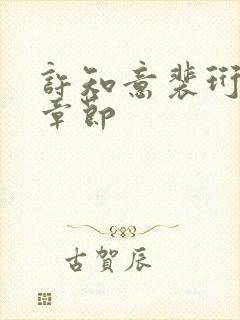 許知意裴珩
章節
古賀辰